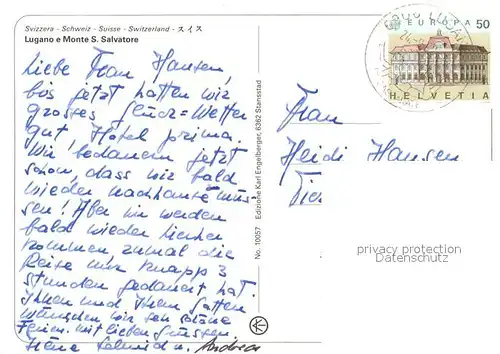 Svizzera - Schweiz - Suisse - Switzerland - スイス
Lugano e Monte S. Salvatore
Liebe Frau Hansen,
bis jetzt hatten wir
grosses Glück = Wetter
gut, Hotel prima.
Wir bedauern jetzt
schon, dass wir bald
wieder nachhause müs-
sen! Aber wir werden
bald wieder hierher
kommen, zumal die
Reise nur knapp 3
Stunden gedauert hat.
Ihnen und Ihrem Gatten
wünschen wir sehr schöne
Ferien. Mit lieben Grüssen
No. 10057 Edizione Karl Engelberger, 6362 Stansstad
EUROPA 50
HELVETIA
Frau
Heidi Hansen
privacy protection
Datenschutz